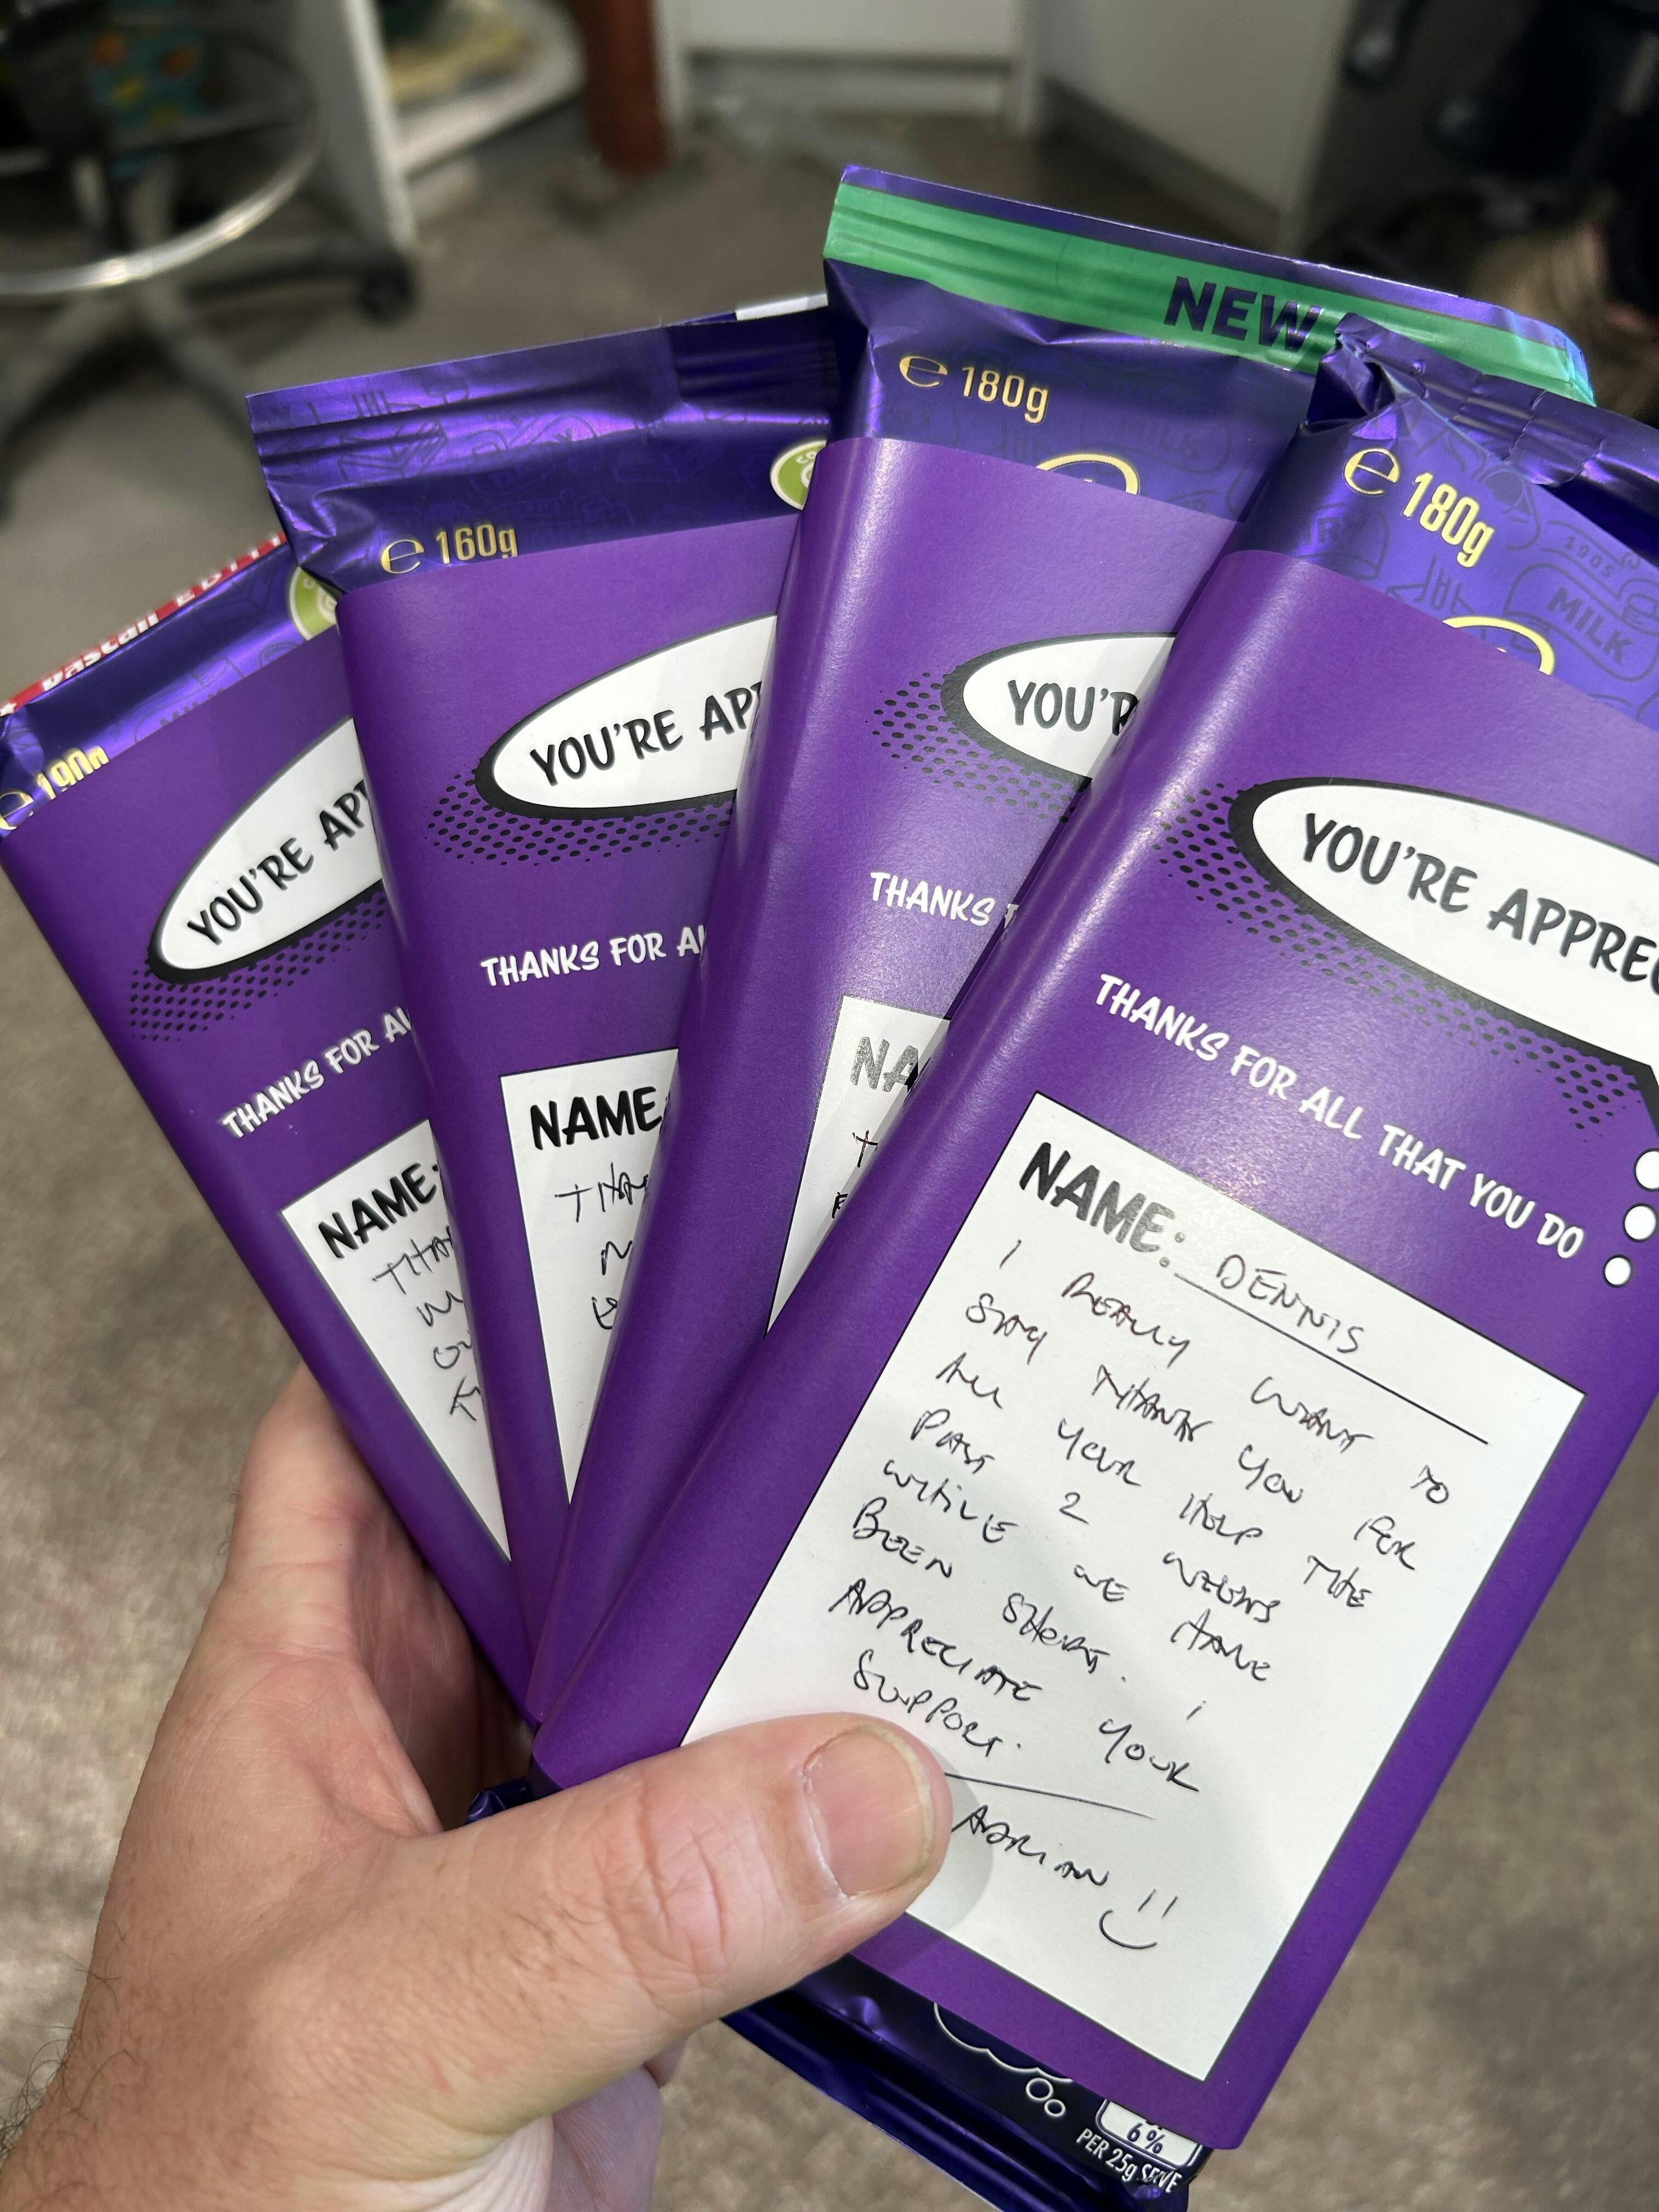 Pascall
e 190g
YOU'RE AP
THANKS FOR AL
NAME:
THA
e 160g
YOU'RE APP
THANKS FOR AL
NAME
THAN
NEW
e 180g
YOU'R
THANKS
NA
e 180g
1905
MILK
YOU'RE APPREC
THANKS FOR ALL THAT YOU DO
NAME: DENNIS
I REALLY WANT TO
SAY THANK YOU FOR
ALL YOUR HELP THE
PAST 2 WEEKS
WHILE WE HAVE
BEEN SHORT. I
APPRECIATE YOUR
SUPPORT.
ADRIAN
6%
PER 25g SERVE